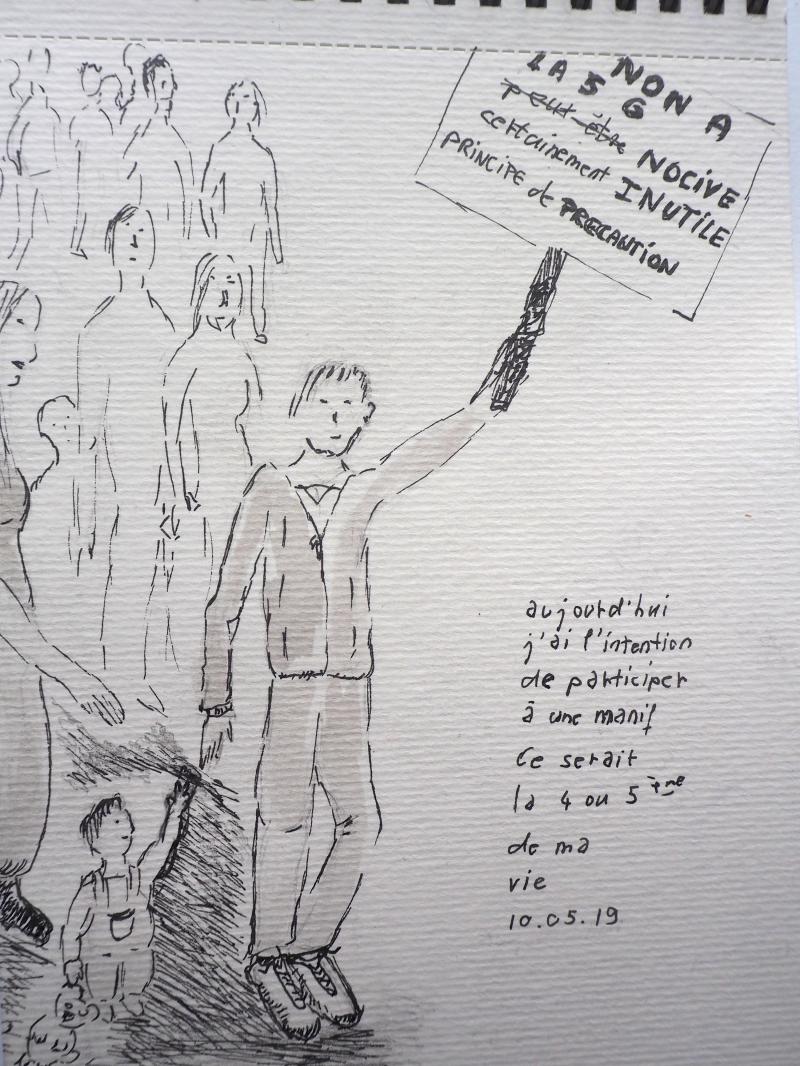 NON A
LA 5G
peut-être NOCIVE
certainement INUTILE
PRINCIPE de PRECAUTION
aujourd'hui
j'ai l'intention
de participer
à une manif
Ce serait
la 4 ou 5ème
de ma
vie
10.05.19